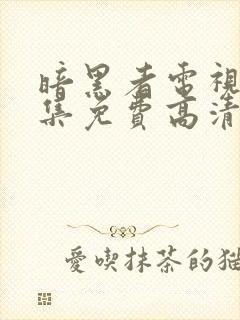 暗黑者電視
集免費高清
愛喫抹茶的貓